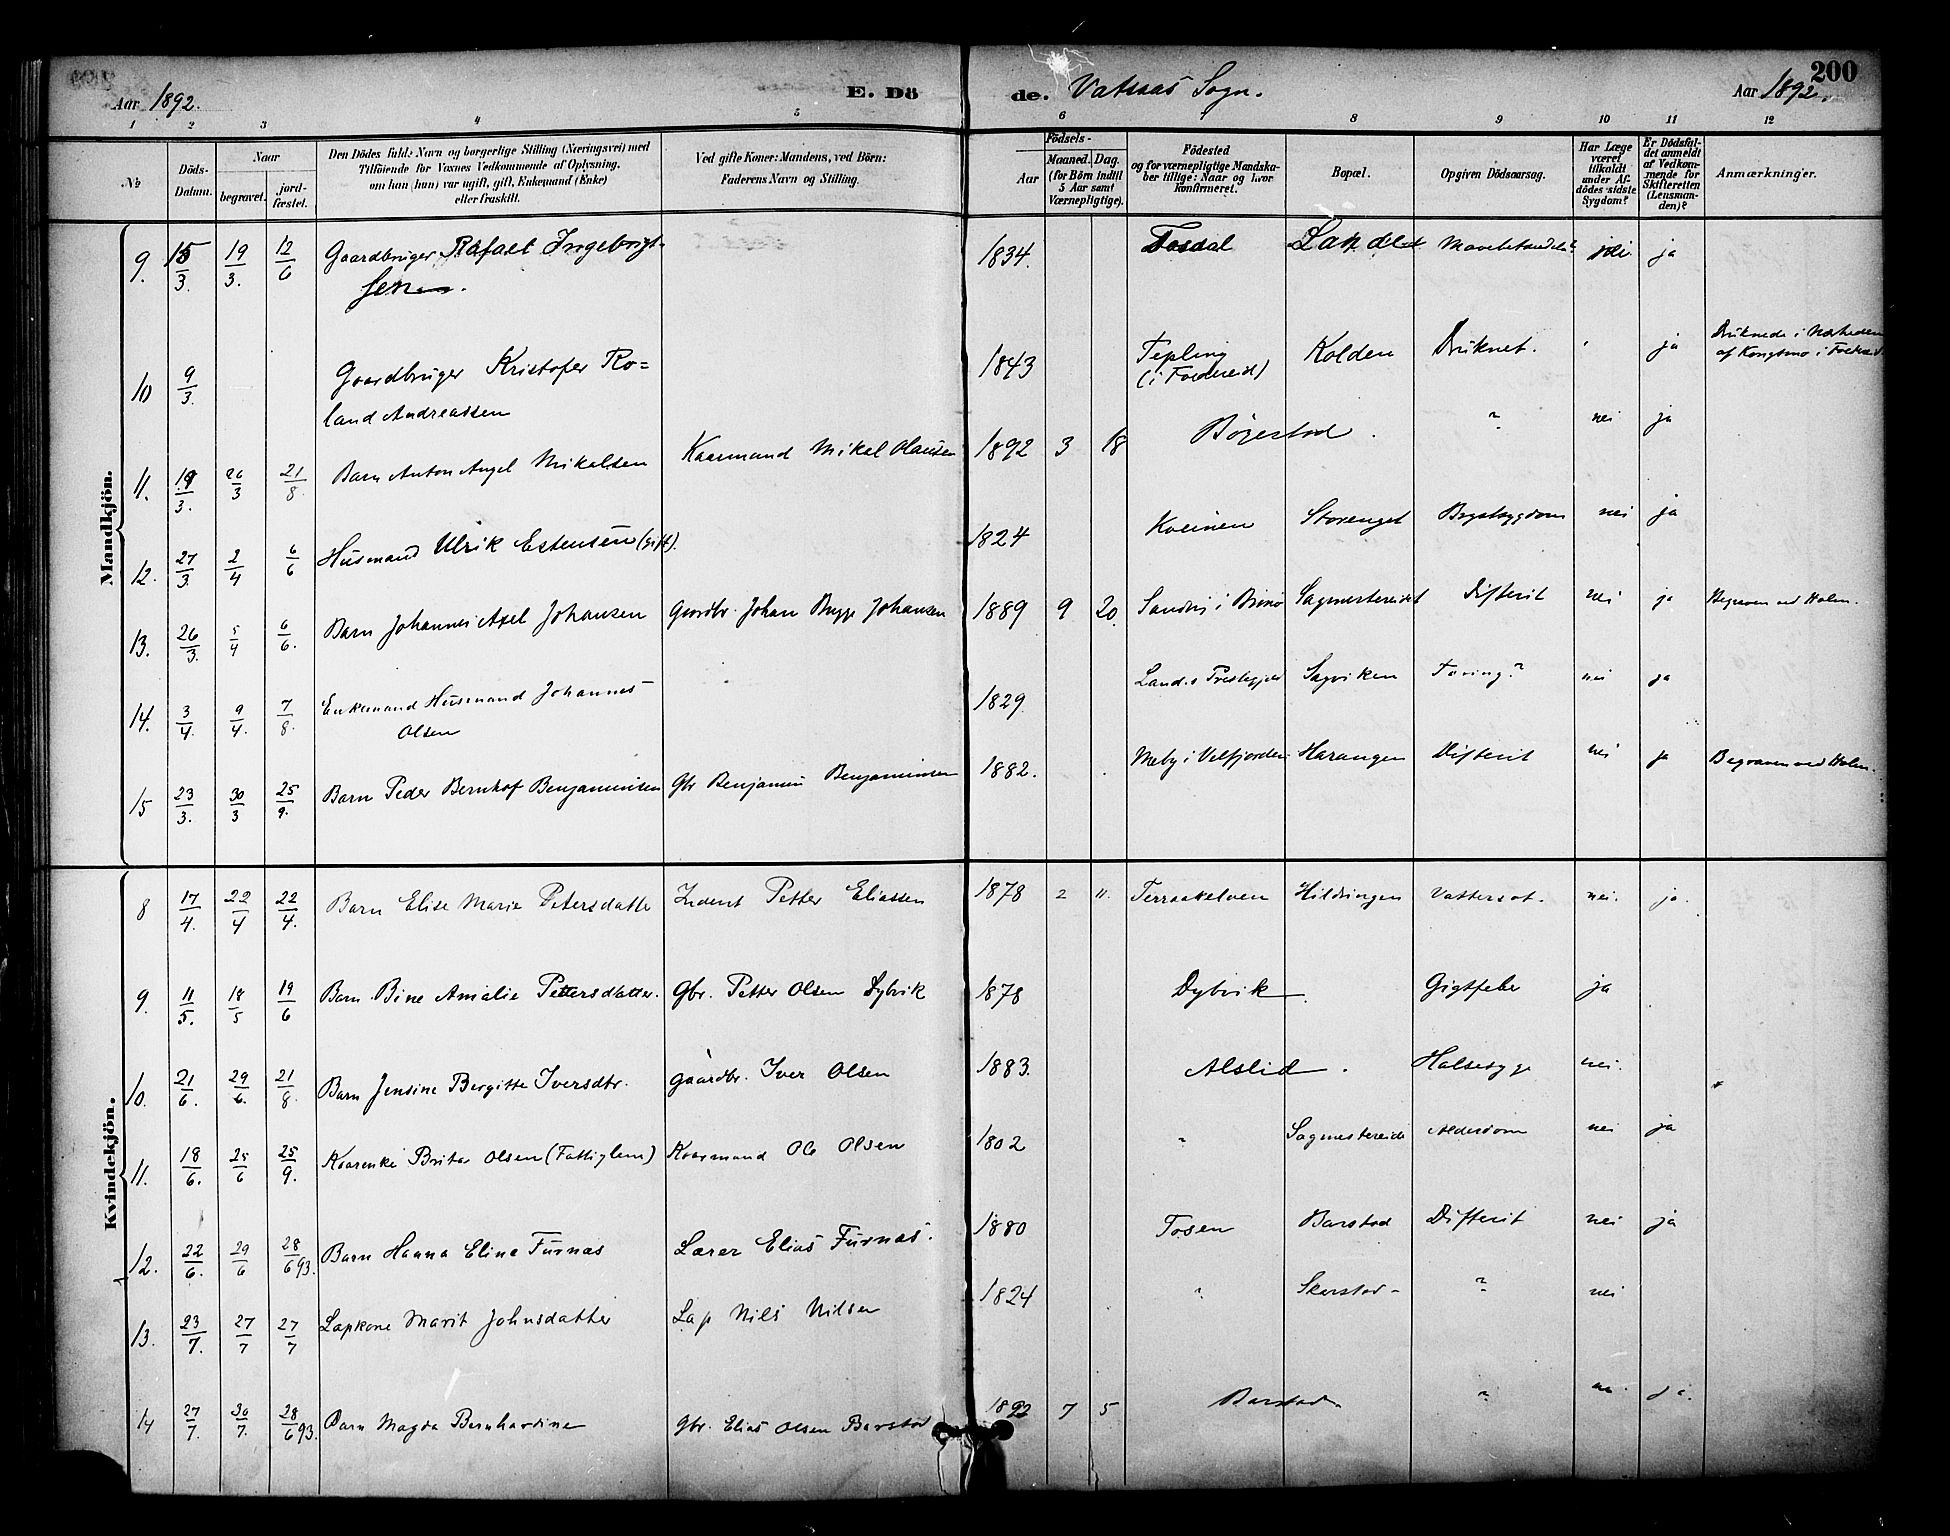 Aar 1892. E. Dö de. Vatnas Sogn. Aar 1892. 200
1 2 3 4 5 6 7 8 9 10 11 12
№ Döds-Datum. Naar begravet. jordfæstet. Den Dödes fulde Navn og borgerlige Stilling (Næringsvei) med Tilföiende for Voxnes Vedkommende af Oplysning, om han (hun) var ugift, gift, Enkemand (Enke) eller fraskilt. Ved gifte Koner: Mandens, ved Börn: Faderens Navn og Stilling. Födsels- Aar Maaned. Dag. (for Börn indtil 5 Aar samt Værnepligtige). Födested og for værnepligtige Mandskaber tillige: Naar og hvor konfirmeret. Bopæl. Opgiven Dödsaarsag. Har Læge været tilkaldt under Afdödes sidste Sygdom? Er Dödsfaldet anmeldt af Vedkommende for Skifteretten (Lensmanden)? Anmærkninger.
Mandkjön.
9. 15/3 19/3. 12/6 Gaardbruger Rafael Ingebrigtsen. 1834. Tosdal ja
10 9/3. Gaardbruger Kristofer Roland Andreassen 1843 Tepling (i Foldereid) Kolden Druknet. ja Druknede i Nærheden af Kongsmo i Foldereid
11. 19/3. 26/3 21/8. Barn Anton Angel Mikalsen Kaarmand Mikal Hansen 1892 3 18 Børestad. ? nei ja
12. 27/3. 2/4 6/6 Husmand Ulrik Estensen (gift). 1824 Storenget Brystsygdom nei ja
13. 26/3. 5/4 6/6. Barn Johannes Axel Johansen Gaardbr. Johan Bugge Johansen 1889 9 20. Sagmestereidet Difterit nei ja Begraven ved Holm.
14. 3/4. 9/4. 7/8. Enkemand Husmand Johannes Olsen 1829. Sagviken Tæring? nei ja
15 23/3. 30/3 25/9. Barn Peder Bernhof Benjaminsen Gbr Benjamin Benjaminsen 1882. Meby i Velfjorden Harangen Difterit nei ja Begraven ved Holm.
Kvindekjön.
8 17/4. 22/4 22/4. Barn Elise Marie Petersdatter Inderst Petter Eliassen 1878 2 11. Terraakelven Hildringen Vattersot. nei. ja.
9. 11/5. 18/5 19/6 Barn Bine Amalie Pettersdatter. Gbr. Petter Olsen Dybvik 1878 Dybvik. Gigtfeber ja
10. 21/6. 29/6. 21/8 Barn Jensine Bergitte Iversdtr. Gaardbr. Iver Olsen 1883. Alslid. Halssyge nei.
11. 18/6. 25/6 25/9. Kaarenke Brita Olsen (Fattiglem) Kaarmand Ole Olsen 1802 " Sagmestereide Alderdom nei ja
12. 22/6. 29/6 28/6 93. Barn Hanna Eline Furnæs Lærer Elias Furnæs. 1880 Tosen Barstad Difterit nei ja
13. 23/7. 27/7 27/7 Lapkone Marit Johnsdatter Lap Nils Nilsen 1824 ? Skarstad ? nei
14 27/7. 30/7. 28/6 93. Barn Magda Bernhardine Gbr. Elias Olsen Barstad 1892 7 5 Barstad ? nei ja.